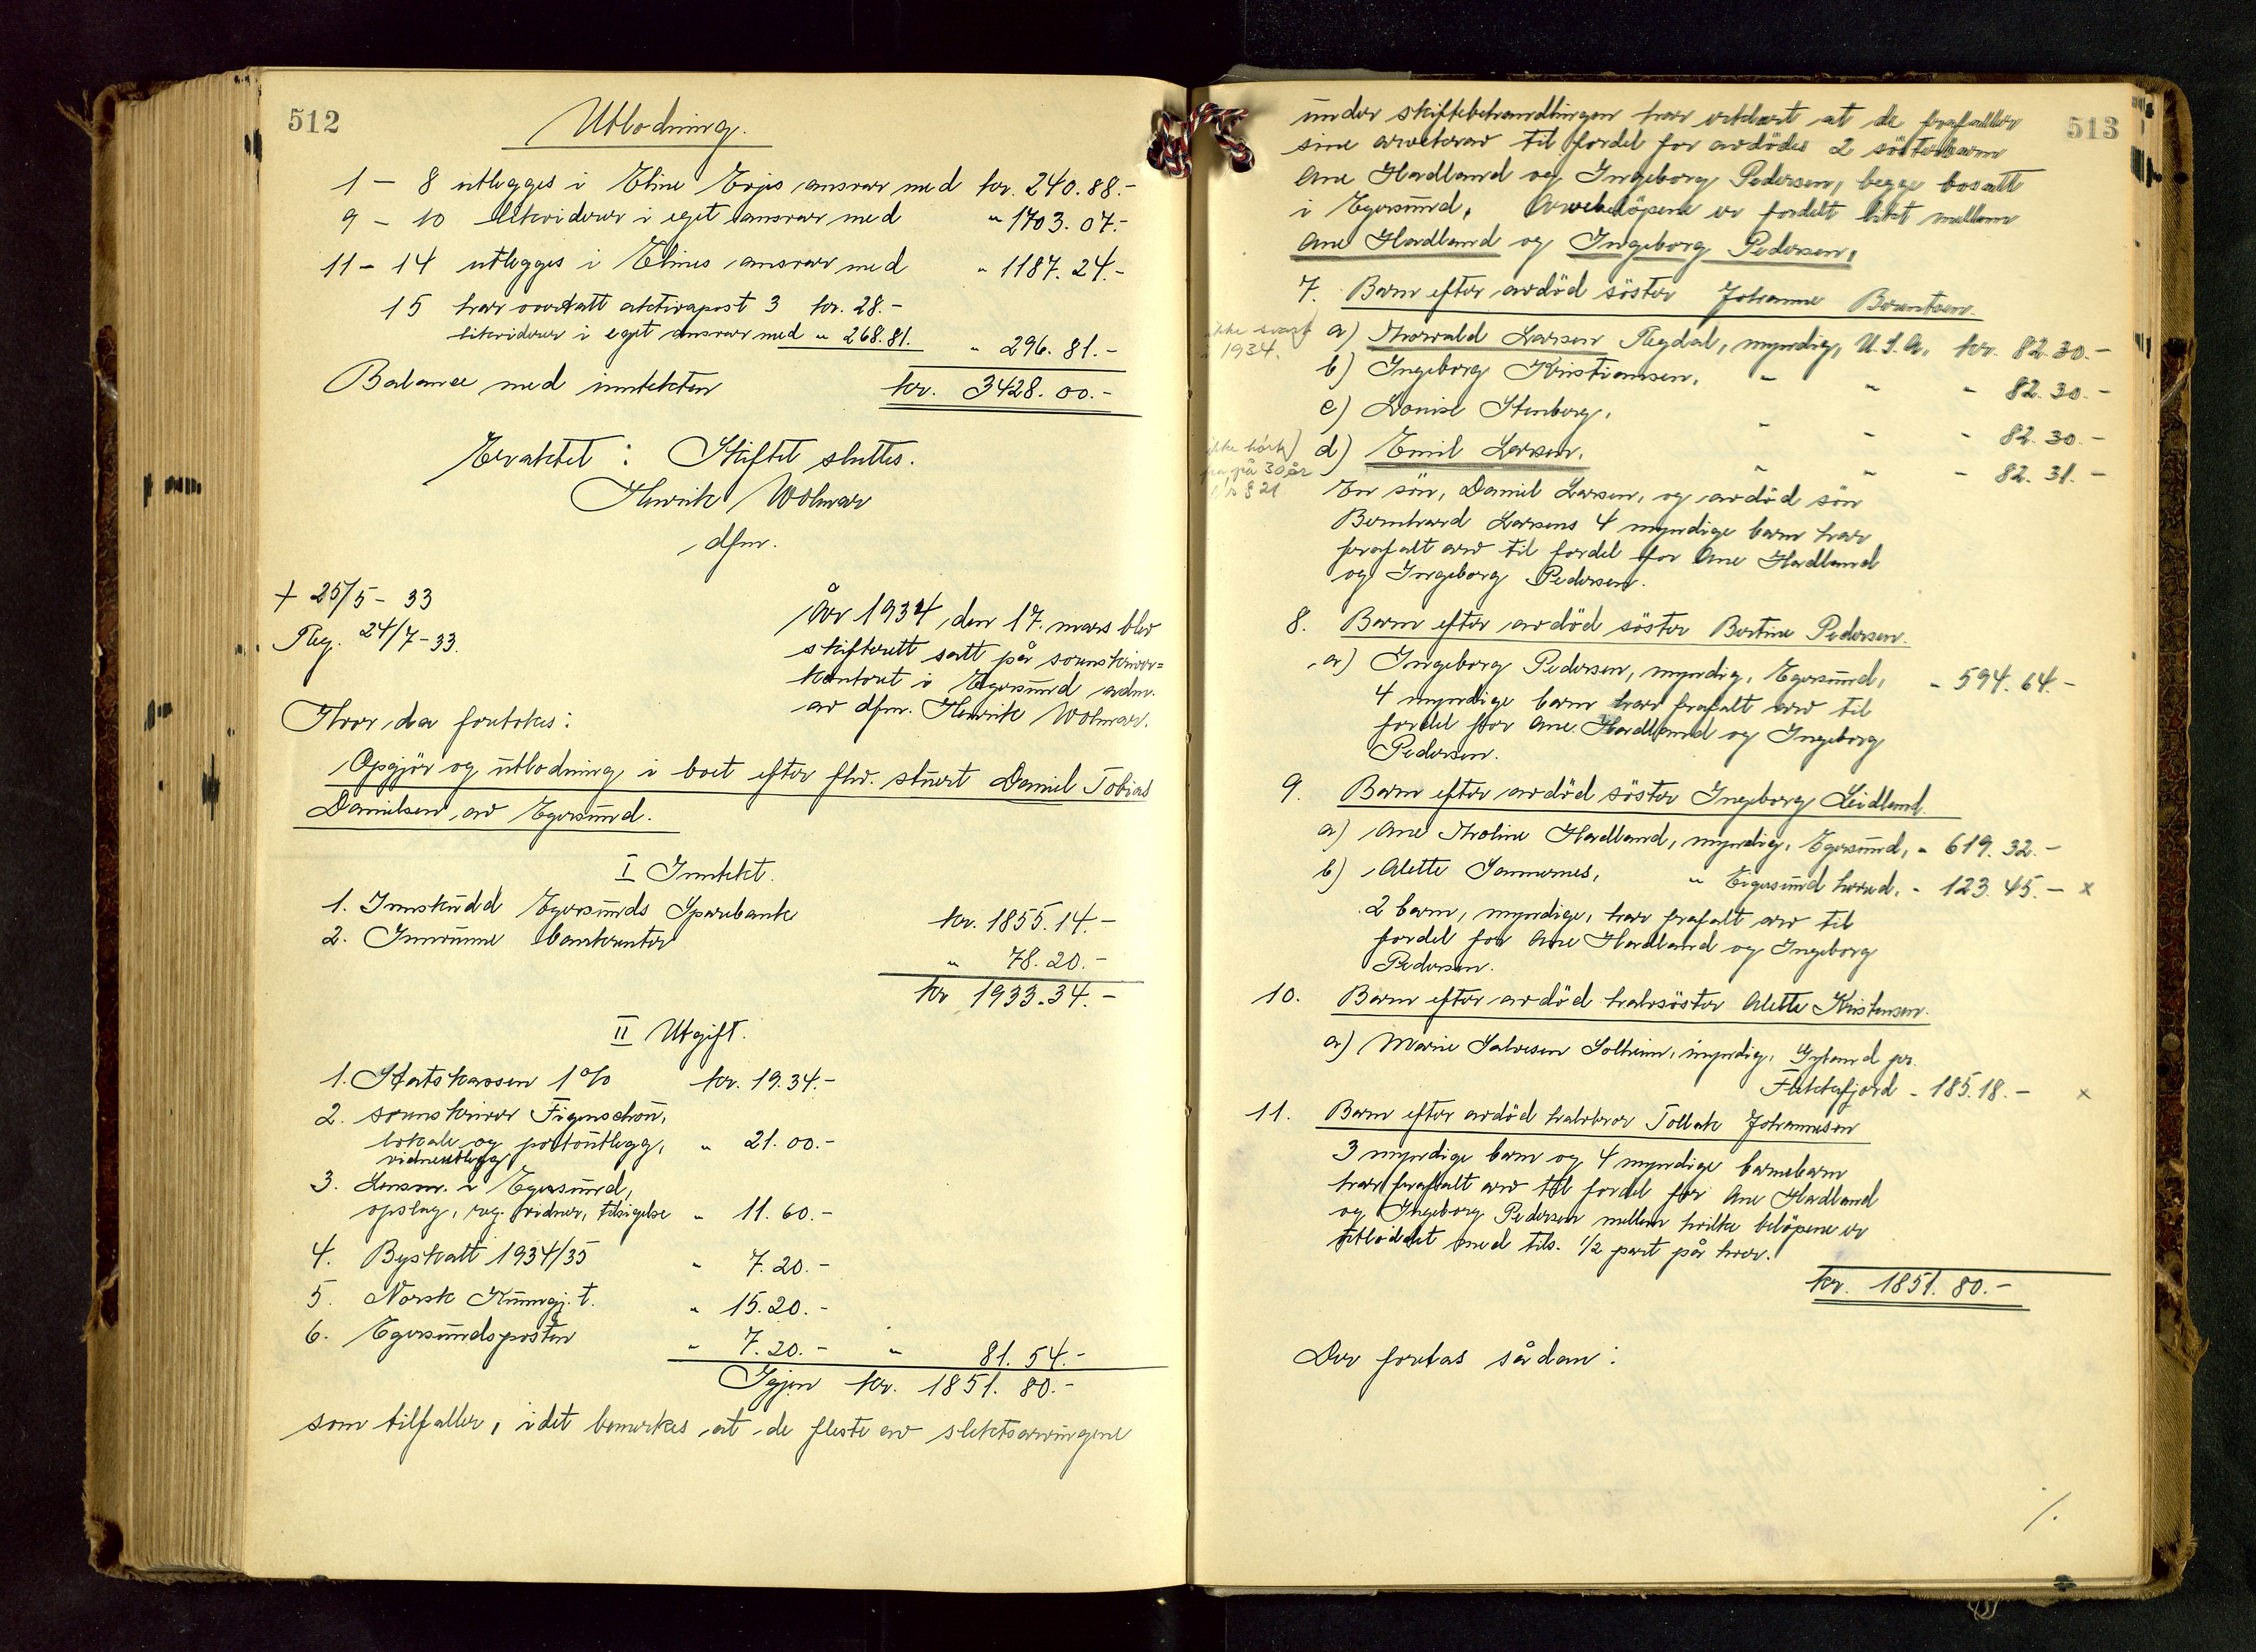 512
Utlodning.
1 - 8 utlegges i Eline Erjes ansvar med kr. 240.88.-
9 - 10 likviderer i eget ansvar med " 1703.07.-
11 - 14 utlegges i Elines ansvar med " 1187.24.-
15 har overtatt aktivapost 3 kr. 28.-
likviderer i eget ansvar med " 268.81. " 296.81.-
Balance med inntekten kr. 3428.00.-
Eraktet: Skiftet sluttes.
Henrik Wolmar
dfm.
+ 25/5 - 33
Reg. 24/7-33.
År 1934, den 17. mars blev
skifterett satt på sorenskriver=
kontoret i Egersund adm.
av dfm. Henrik Wolmar.
Hvor da foretokes:
Opgjør og utlodning i boet efter fhv. stuert Daniel Tobias
Danielsen, av Egersund.
I Inntekt.
1. Innskudd Egersunds Sparebank kr. 1855.14.-
2. Innvunne bankrenter " 78.20.-
kr 1933.34.-
II Utgift.
1. Statskassen 1% kr. 19.34.-
2. sorenskriver Figenschou,
lokale og portoutlegg, " 21.00.-
vidneutlegg
3. Lensm. i Egersund,
opslag, reg. vidner, tilsigelse " 11.60.-
4. Byskatt 1934/35 " 7.20.-
5. Norsk Kunngj. t. " 15.20.-
6. Egersundsposten " 7.20.- " 81.54.-
Igjen kr. 1851.80.-
som tilfaller, idet bemerkes at de fleste av slektsarvingene
513
under skiftebehandlingen har erklært at de frafaller
sine arvekrav til fordel for avdødes 2 søsterbarn
Ane Hadland og Ingeborg Pedersen, begge bosatt
i Egersund. Arvebeløpene er fordelt likt mellem
Ane Hadland og Ingeborg Pedersen.
7. Barn efter avdød søster Johanne Berentsen.
ikke svart
i 1934.
a) Thorvald Larsen Regdal, myndig, U.S.A. kr. 82.30.-
b) Ingeborg Kristiansen, " " " 82.30.-
c) Louise Stenberg, " " " 82.30.-
ikke hørt
fra på 30 år
d) Emil Larsen, " " " 82.31.-
En søn, Daniel Larsen, og avdød søn
Bernhard Larsens 4 myndige barn har
frafalt arv til fordel for Ane Hadland
og Ingeborg Pedersen.
8. Barn efter avdød søster Bertine Pedersen.
a) Ingeborg Pedersen, myndig, Egersund, " 594.64.-
4 myndige barn har frafalt arv til
fordel for Ane Hadland og Ingeborg
Pedersen.
9. Barn efter avdød søster Ingeborg Leidland.
a) Ane Tholine Hadland, myndig, Egersund, " 619.32.-
b) Alette Sannernes, " Eigersund herred, " 123.45.- x
2 barn, myndige, har frafalt arv til
fordel for Ane Hadland og Ingeborg
Pedersen.
10. Barn efter avdød halvsøster Alette Kristensen.
a) Marie Salvesen Solheim, myndig, Gyland pr.
Flekkefjord " 185.18.- x
11. Barn efter avdød halvbror Tollak Johannesen
3 myndige barn og 4 myndige barnebarn
har frafalt arv til fordel for Ane Hadland
og Ingeborg Pedersen mellem hvilke beløpene er
utloddet med tils. 1/2 part på hver.
kr. 1851.80.-
Der foretas sådan:
/.